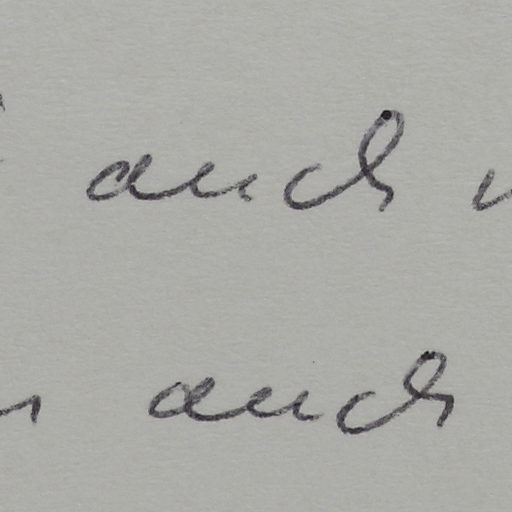 auch
auch